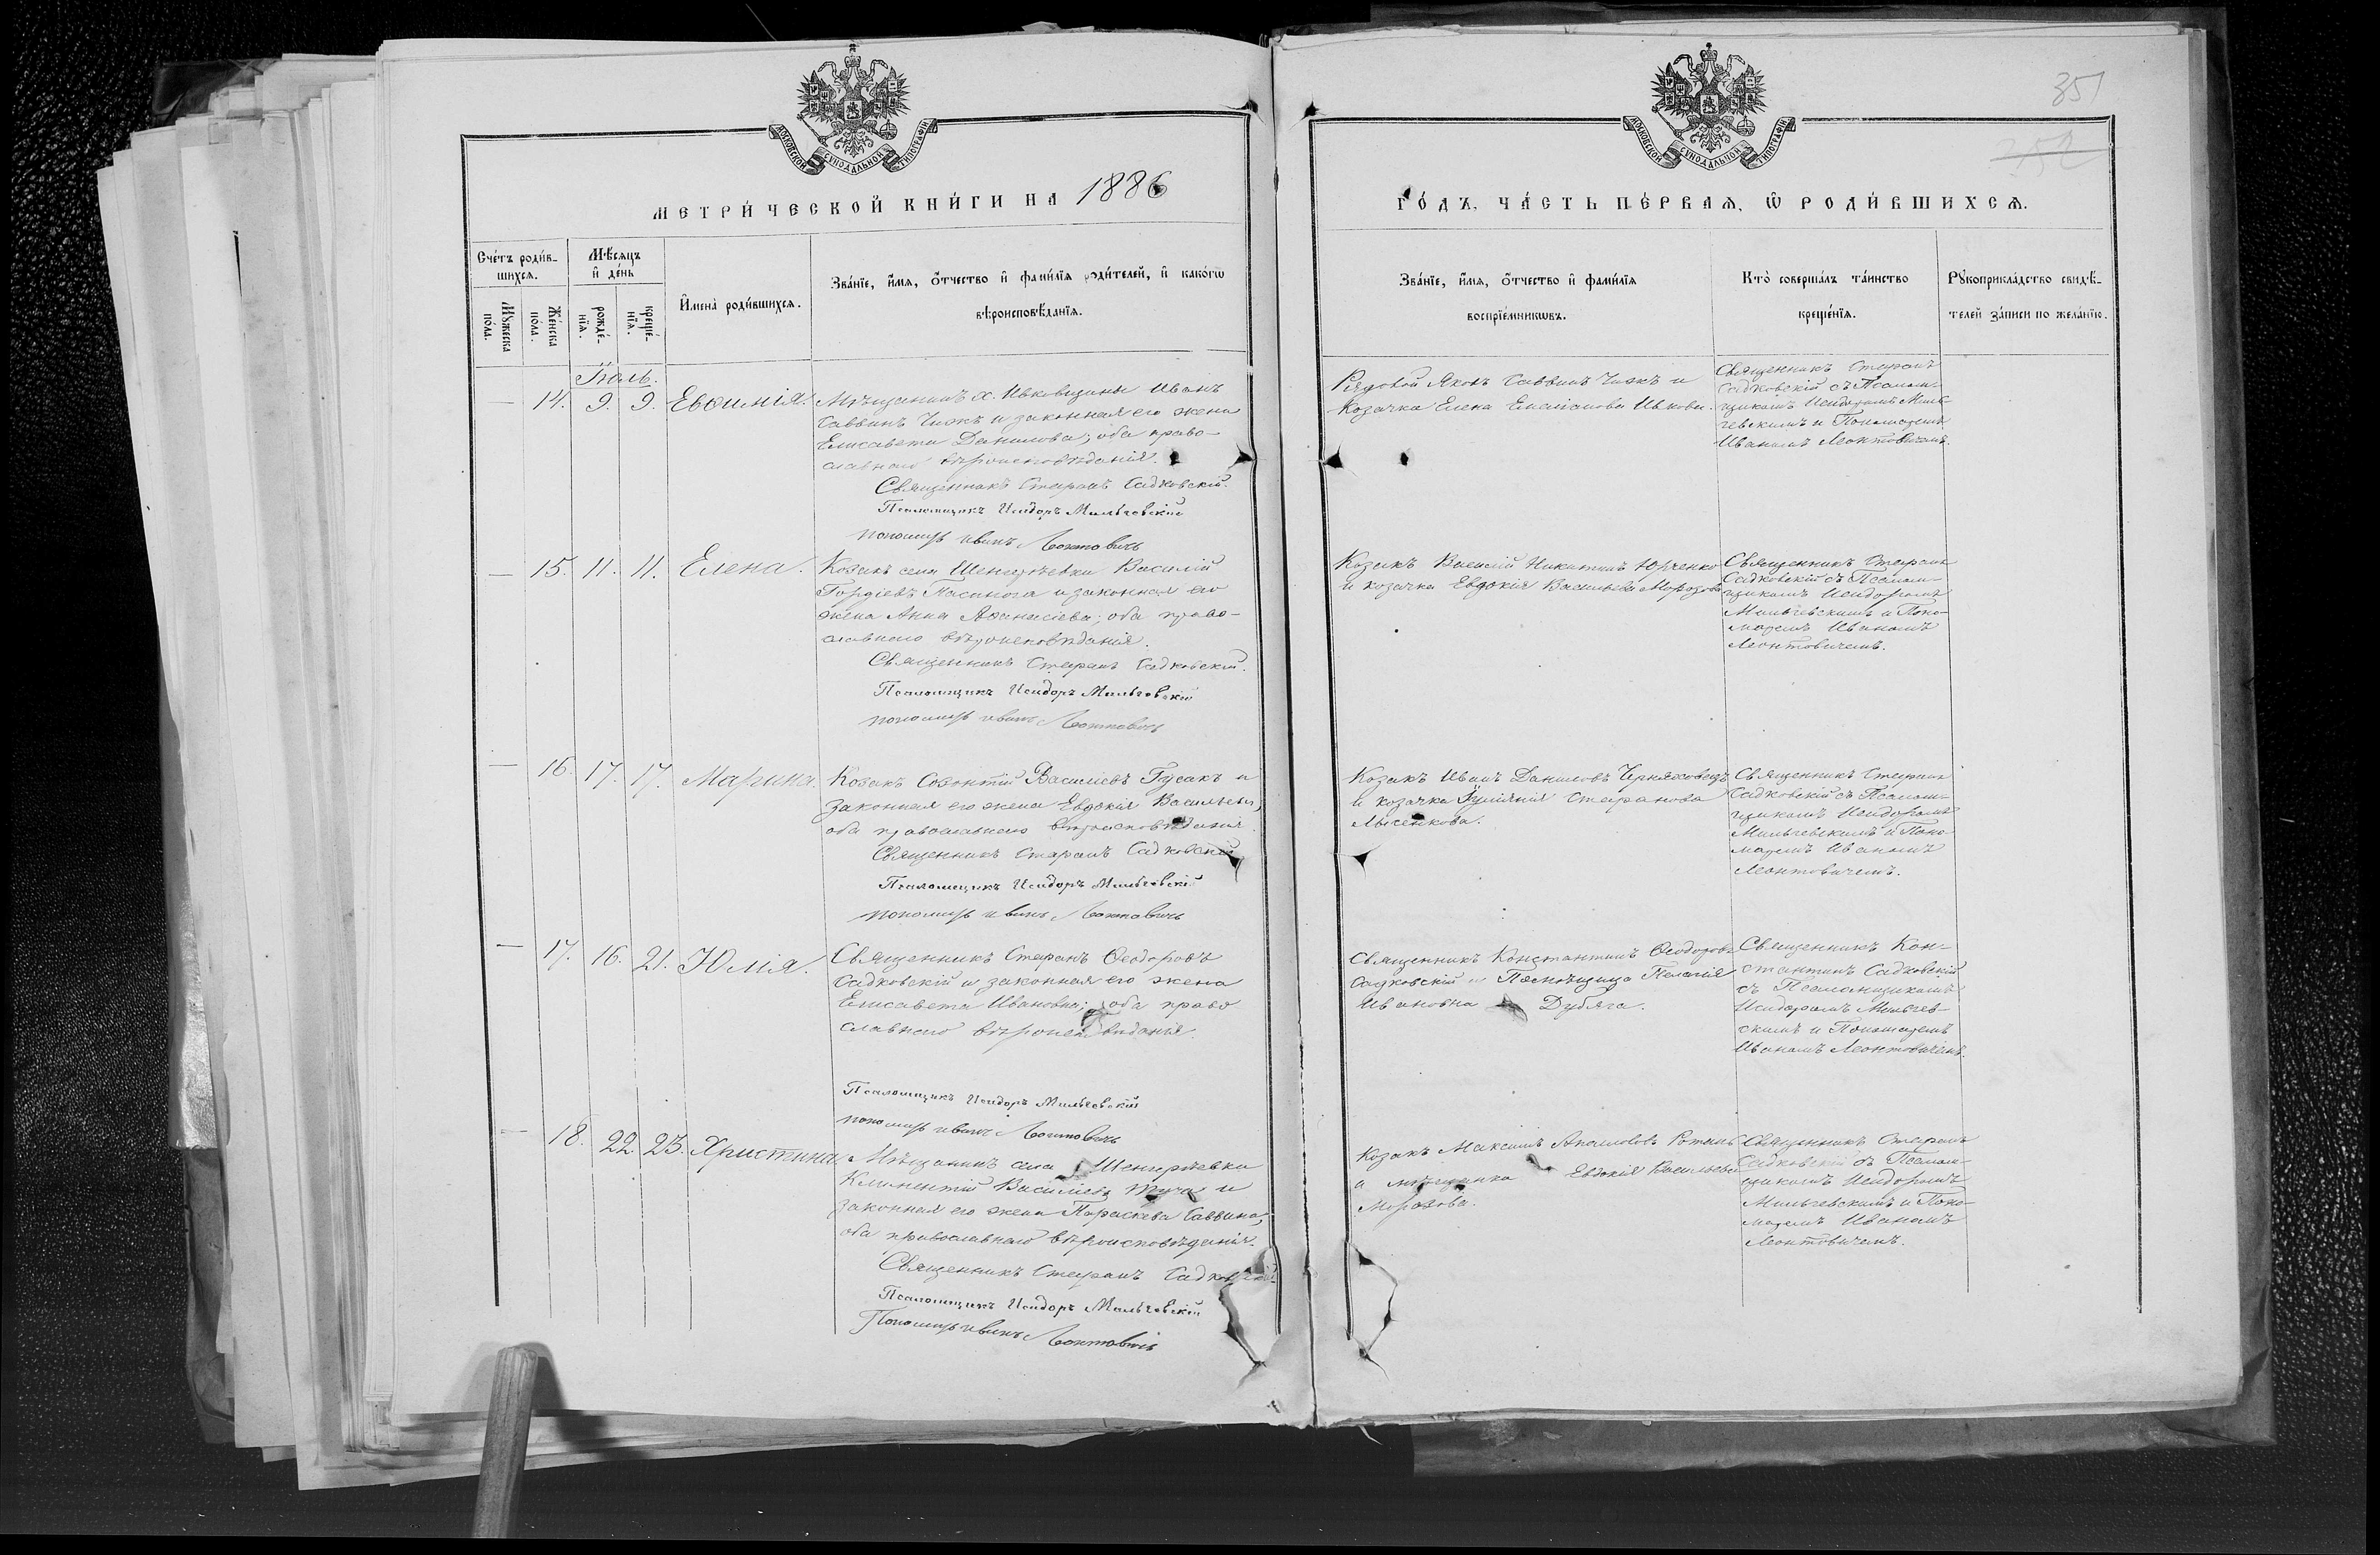 МОСКОВСКОЙ СѴНОДАЛЬНОЙ ТИПОГРАФІИ
МЕТРИ́ЧЕСКОЙ КНИ́ГИ НА 1886
Сче́тъ роди́в-
шихсѧ.
Мꙋжеска
по́ла.
Же́нска
по́ла.
Мѣ́сѧцъ
и҆ де́нь
рожде́-
нїѧ.
креще́-
нїѧ.
И҆мена̀ роди́вшихсѧ.
Зва́нїе, и҆́мѧ, ѻ҆́тчество и҆ фами́лїѧ роди́телей, и҆ како́гѡ
вѣроисповѣ́данїѧ.
Іюль.
— 14. 9. 9. Евѳимія.
Мѣщанинъ х. Ивковщины Иванъ
Саввинъ Чижъ и законная его жена
Елисавета Данилова; оба право-
славнаго вѣроисповѣданія.
Священникъ Стефанъ Садковскій.
Псаломщикъ Исидоръ Мильгевскій
пономарь Иванъ Леонтовичъ
— 15. 11. 11. Елена.
Козакъ села Шенгурѣевки Василій
Гордіевъ и законная его
жена Анна Аѳанасіева; оба право-
славнаго вѣроисповѣданія.
Священникъ Стефанъ Садковскій.
Псаломщикъ Исидоръ Мильгевскій
пономарь Иванъ Леонтовичъ
— 16. 17. 17. Марина.
Козакъ Созонтій Василіевъ Гусакъ и
законная его жена Евдокія Васильева,
оба православнаго вѣроисповѣданія.
Священникъ Стефанъ Садковскій
Псаломщикъ Исидоръ Мильгевскій
пономарь Иванъ Леонтовичъ
— 17. 16. 21. Юлія.
Священникъ Стефанъ Ѳеодоровъ
Садковскій и законная его жена
Елисавета Ивановна; оба право
славнаго вѣроисповѣданія.
Псаломщикъ Исидоръ Мильгевскій
пономарь Иванъ Леонтовичъ
— 18. 22. 23. Христина.
Мѣщанинъ села Шенгурѣевки
Климентій Василіевъ и
законная его жена Параскева Саввина,
оба православнаго вѣроисповѣданія.
Священникъ Стефанъ Садковскій
Псаломщикъ Исидоръ Мильгевскій
Пономарь Иванъ Леонтовичъ
351
352
МОСКОВСКОЙ СѴНОДАЛЬНОЙ ТИПОГРАФІИ
ГО́ДЪ, ЧА́СТЬ ПЕ́РВАѦ, Ѡ҆ РОДИ́ВШИХСѦ.
Зва́нїе, и҆́мѧ, ѻ҆́тчество и҆ фами́лїѧ
воспрїе́мникѡвъ.
Кто̀ соверша́лъ та́инство
креще́нїѧ.
Рꙋкоприкла́дство свидѣ́-
телей за́писи по жела́нїю.
Рядовой Яковъ Саввинъ Чижъ и
Козачка Елена Емеліанова Ивкова.
Священникъ Стефанъ
Садковскій съ Псалом-
щикомъ Исидоромъ Миль-
гевскимъ и Пономаремъ
Иваномъ Леонтовичемъ.
Козакъ Василій Никитинъ Юрченко
и козачка Евдокія Васильева Морозова
Священникъ Стефанъ
Садковскій съ Псалом-
щикомъ Исидоромъ
Мильгевскимъ и Поно-
маремъ Иваномъ
Леонтовичемъ.
Козакъ Иванъ Даниловъ Черняховецъ
и козачка Стефанова
Лысенкова.
Священникъ Стефанъ
Садковскій съ Псалом-
щикомъ Исидоромъ
Мильгевскимъ и Поно
маремъ Иваномъ
Леонтовичемъ.
Священникъ Константинъ Ѳеодоровъ
Садковскій и Помѣщица Пелагія
Ивановна Дубяга.
Священникъ Кон-
стантинъ Садковскій
съ Псаломщикомъ
Исидоромъ Мильгев-
скимъ и Пономаремъ
Иваномъ Леонтовичемъ.
Козакъ Максимъ
и мѣщанка Евдокія Васильева
Морозова.
Священникъ Стефанъ
Садковскій съ Псалом-
щикомъ Исидоромъ
Мильгевскимъ и Поно-
маремъ Иваномъ
Леонтовичемъ.